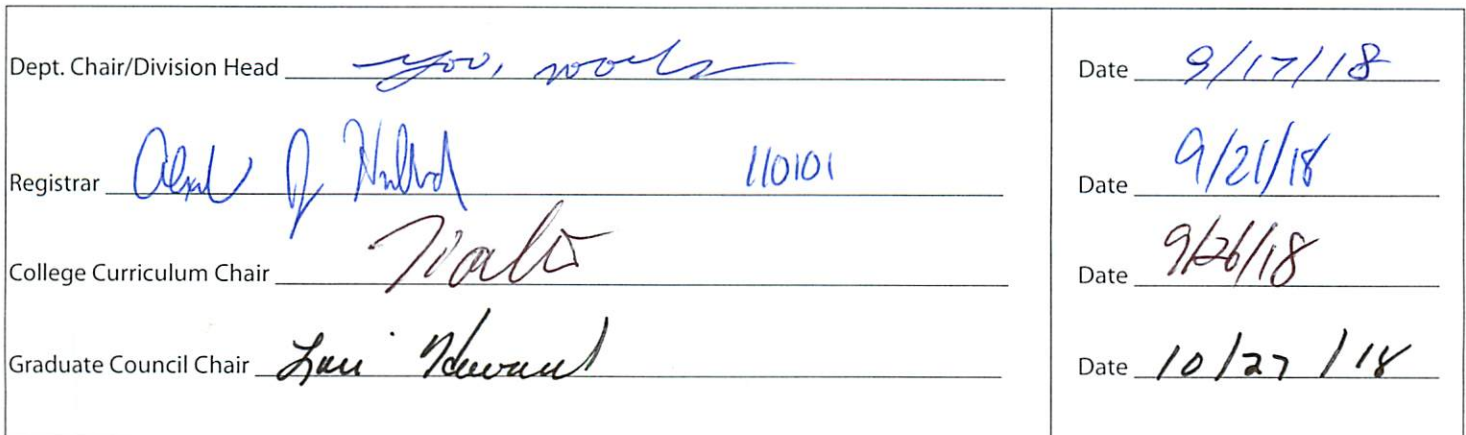 Dept. Chair/Division Head Date 9/17/18
Registrar 110101 Date 9/21/18
College Curriculum Chair Date 9/26/18
Graduate Council Chair Lori Howard Date 10/27/18